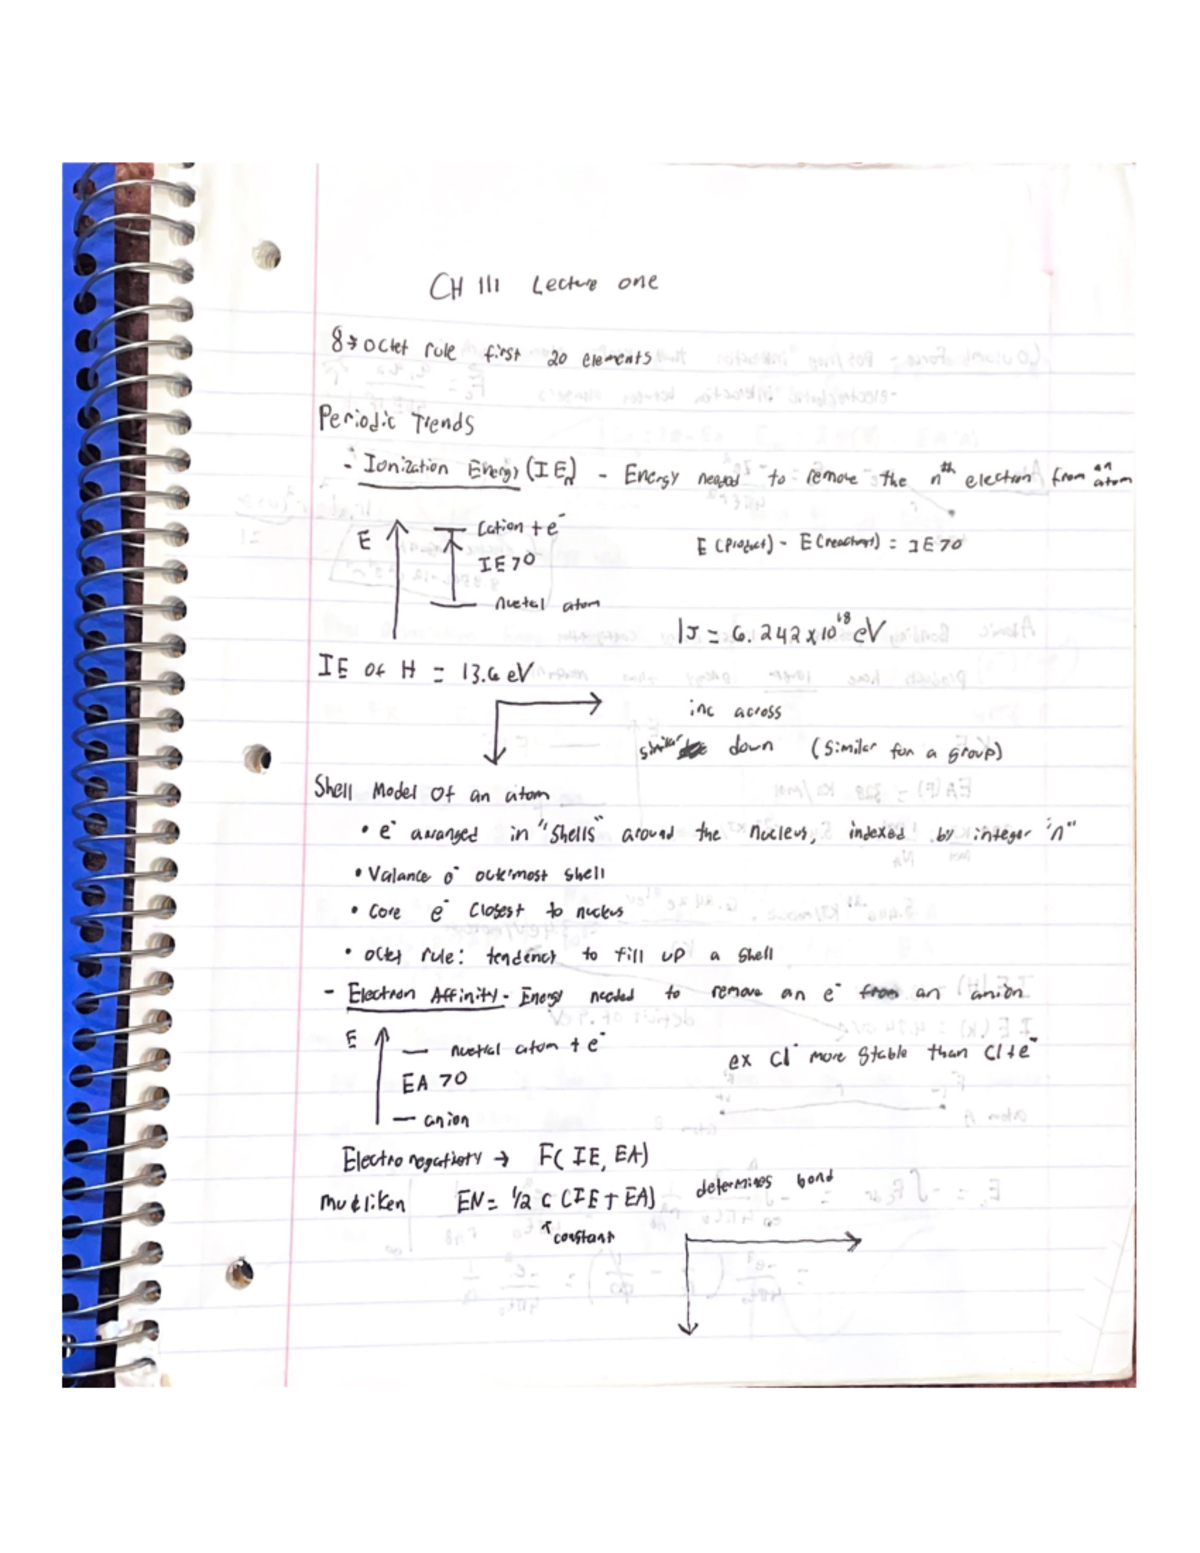 CH 111 Lecture one
8 → octet rule first 20 elements
Periodic Trends
- Ionization Energy (IEn) - Energy needed to remove the nth electron from an atom
E Cation + e-
IE>0
nuetal atom
E (Product) - E (reactant) = IE>0
1J = 6.242x10^18 eV
IE of H = 13.6 eV
inc across
similar down (similar for a group)
Shell Model Of an atom
• e- arranged in "Shells" around the nucleus, indexed by integer "n"
• Valance e- outermost shell
• Core e- Closest to nucleus
• octet rule: tendency to fill up a shell
- Electron Affinity - Energy needed to remove an e- from an anion
E
nuetral atom + e-
EA >0
anion
ex Cl- more stable than Cl+e-
Electronegativity → F( IE, EA)
EN= 1/2 C (IE + EA)
determines bond
↑ constant